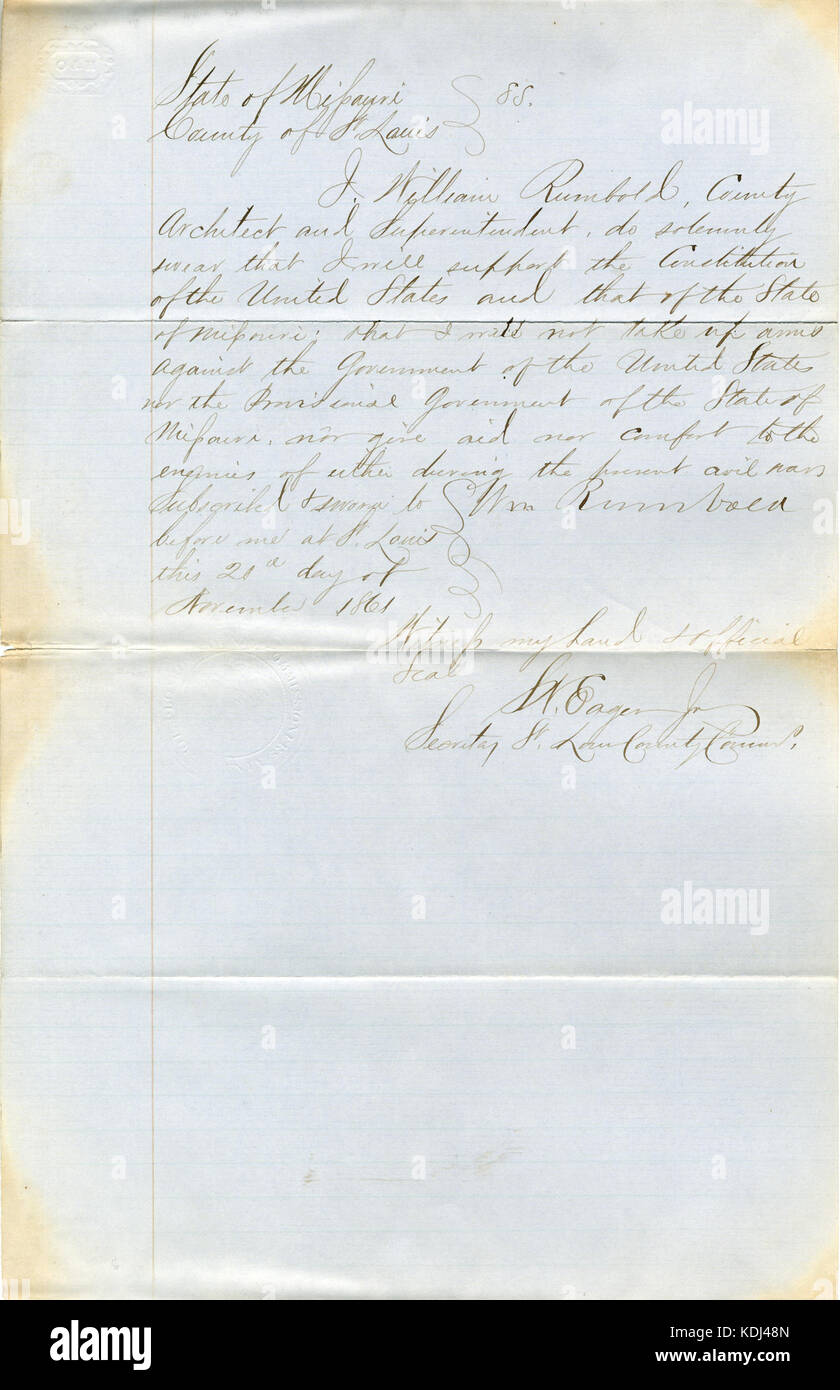 State of Missouri
County of St. Louis } SS.
I, William Rumbold, County
Architect and Superintendent, do solemnly
swear that I will support the Constitution
of the United States and that of the State
of Missouri; that I will not take up arms
against the Government of the United States
nor the Provisional Government of the State of
Missouri, nor give aid nor comfort to the
enemies of either during the present civil war.
Subscribed & sworn to } Wm Rumbold
before me at St. Louis
this 20th day of
November 1861
Witness my hand & official
Seal
St. Louis County
Secretary
alamy
a
Image ID: KDJ48N
www.alamy.com